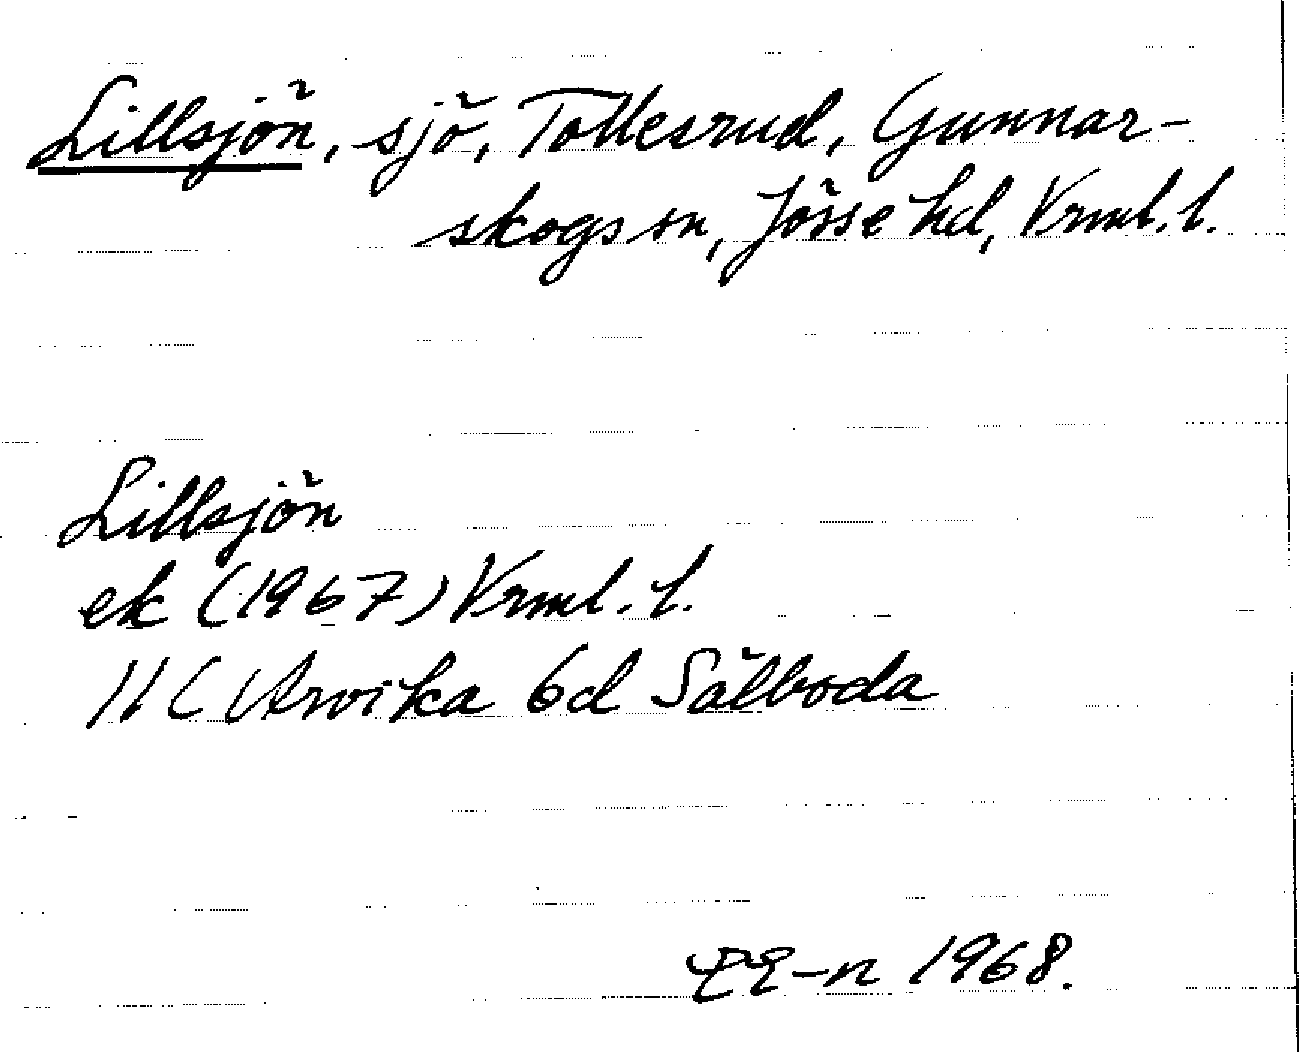 Lillsjön, sjö, Tollesrud, Gunnar-
skogs sn, Jösse hd, Vrml. l.
Lillsjön
ek (1967) Vrml. l.
11 C Arvika 6d Sälboda
1968.